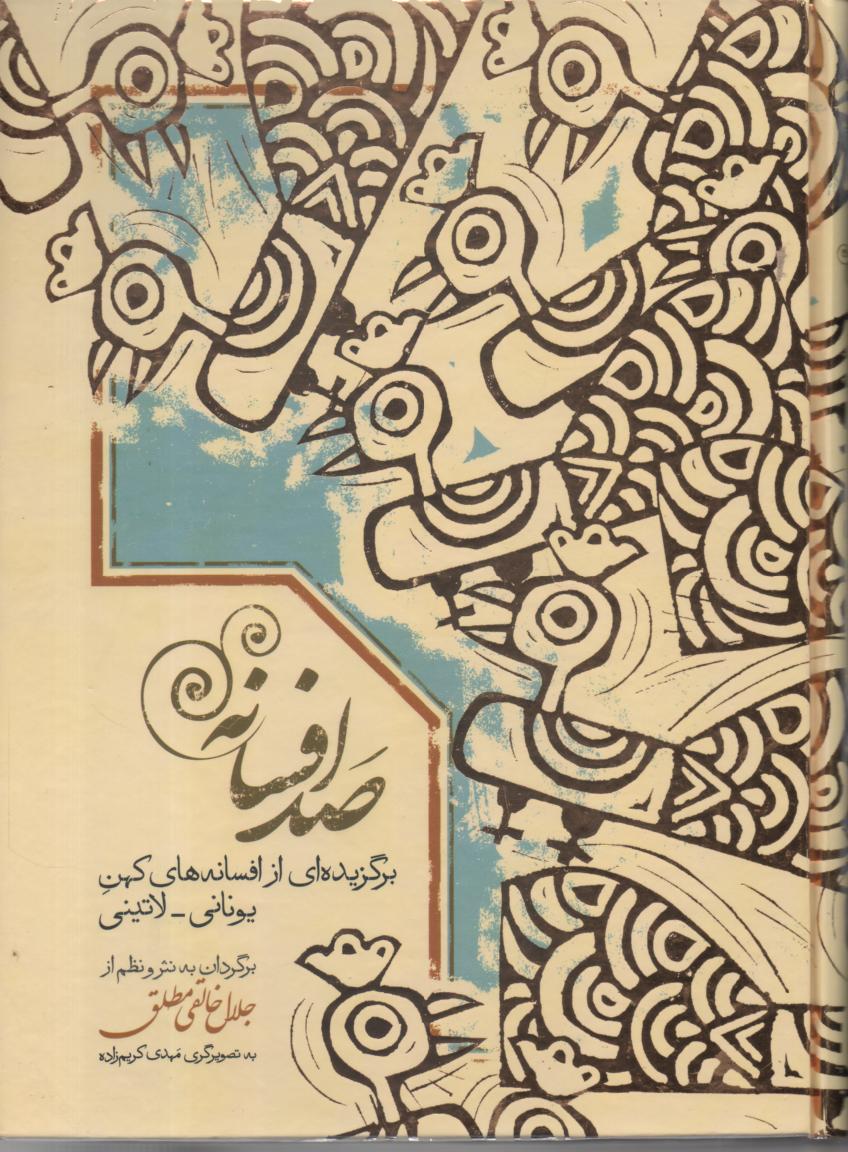 صد افسانه
برگزیده‌ای از افسانه‌های کهنِ
یونانی - لاتینی
برگردان به نثر و نظم از
جلال خالقی مطلق
به تصویرگری مهدی کریم‌زاده